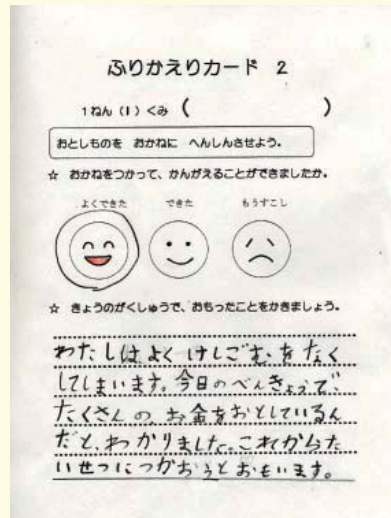 ふりかえりカード 2
1ねん(1)くみ ( )
おとしものを おかねに へんしんさせよう。
☆ おかねをつかって、かんがえることができましたか。
よくできた できた もうすこし
☆ きょうのがくしゅうで、おもったことをかきましょう。
わたしはよくけしごむをなく
してしまいます。今日のべんきょうで、
たくさんの、お金をおとしているん
だと、わかりました。これからた
いせつにつかおうとおもいます。